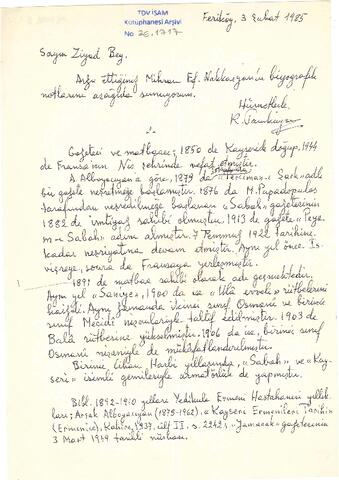 TDV İSAM
Kütüphanesi Arşivi
No 2E.1717
Feriköy, 3 Şubat 1985
Sayın Ziyad Bey,
Arzu ettiğiniz Mihran Ef. Nakkaşyan'ın biyografik
notlarını aşağıda sunuyorum.
Hürmetlerle
K. Pamukciyan
Gazeteci ve matbaacı; 1850 de Kayseride doğup, 1944
de Fransa'nın Nis şehrinde vefat etmiştir.
A. Alboyacıyan'a göre, 1875 da "Tercüman-ı Şark" adlı
bir gazete neşretmeğe başlamıştır. 1876 da M. Papadopulos
tarafından neşredilmeğe başlanan «Sabah» gazetesinin
1882 de imtiyaz sahibi olmuştur. 1913 de gazete «Peya-
m-ı Sabah» adını almıştır. 7 Temmuz 1922 tarihine
kadar neşriyatına devam etmiştir. Aynı yıl önce İs-
viçreye, sonra da Fransaya yerleşmiştir.
1891 de matbaa sahibi olarak ade geçmektedir.
Aynı yıl «Saniye», 1900 da ıse «Ulâ evveli» rütbelerini
haizdi. Aynı zamanda ikinci sınıf Osmani ve birinci
sınıf Mecidi nişanlarıyle taltif edilmiştir. 1903 de
Balâ rütbesine yükselmiştir. 1906 da ise, birinci sınıf
Osmani nişaniyle de mükâfatlandırılmıştır.
Birinci Cihan Harbi yıllarında, «Sabah» ve «Kay-
seri» isimli gemileriyle armatörlük de yapmıştır.
Bibl. 1892-1910 yılları Yedikule Ermeni Hastahanesi yıllık-
ları; Arşak Alboyacıyan (1879-1962), «Kayseri Ermenileri Tarihi»
(Ermenice), Kahire, 1937, cilt II. s. 2242; «Jamanak» gazetesinin
3 Mart 1944 tarihli nüshası.